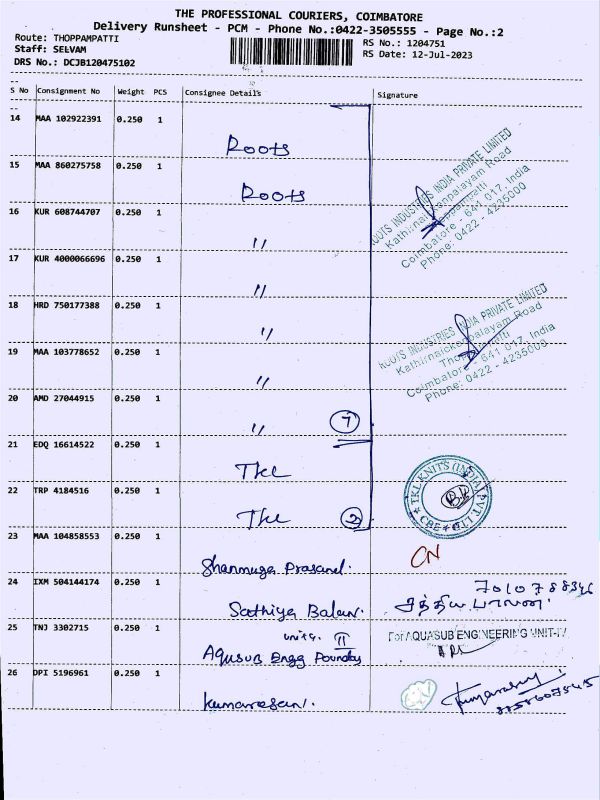 THE PROFESSIONAL COURIERS, COIMBATORE
Delivery Runsheet - PCM - Phone No.:0422-3505555 - Page No.:2
Route: THOPPAMPATTI
RS No.: 1204751
Staff: SELVAM
RS Date: 12-Jul-2023
DRS No.: DCJB120475102
S No Consignment No Weight PCS Consignee Details Signature
14 MAA 102922391 0.250 1
Roots
15 MAA 860275758 0.250 1
Roots
ROOTS INDUSTRIES INDIA PRIVATE LIMITED
Kathirnaickenpalayam Road
Thoppampatti
Coimbatore - 641 017, India
Phone: 0422 - 4235000
16 KUR 608744707 0.250 1
"
17 KUR 4000066696 0.250 1
"
18 HRD 750177388 0.250 1
"
ROOTS INDUSTRIES INDIA PRIVATE LIMITED
Kathirnaickenpalayam Road
Thoppampatti
Coimbatore - 641 017, India
Phone: 0422 - 4235000
19 MAA 103778652 0.250 1
"
20 AMD 27044915 0.250 1
" 7
21 EDQ 16614522 0.250 1
TKL
TKL KNITS (INDIA) PVT. LTD.
CBE
22 TRP 4184516 0.250 1
TKL 2
23 MAA 104858553 0.250 1
CN
Shanmuga Prasand.
24 IXM 504144174 0.250 1
7010788346
Sathiya Balan. சத்திய பாலன்.
25 TNJ 3302715 0.250 1
unit. II
For AQUASUB ENGINEERING UNIT-IV
Aqusub Engg Foundry
26 DPI 5196961 0.250 1
Kumaresan.